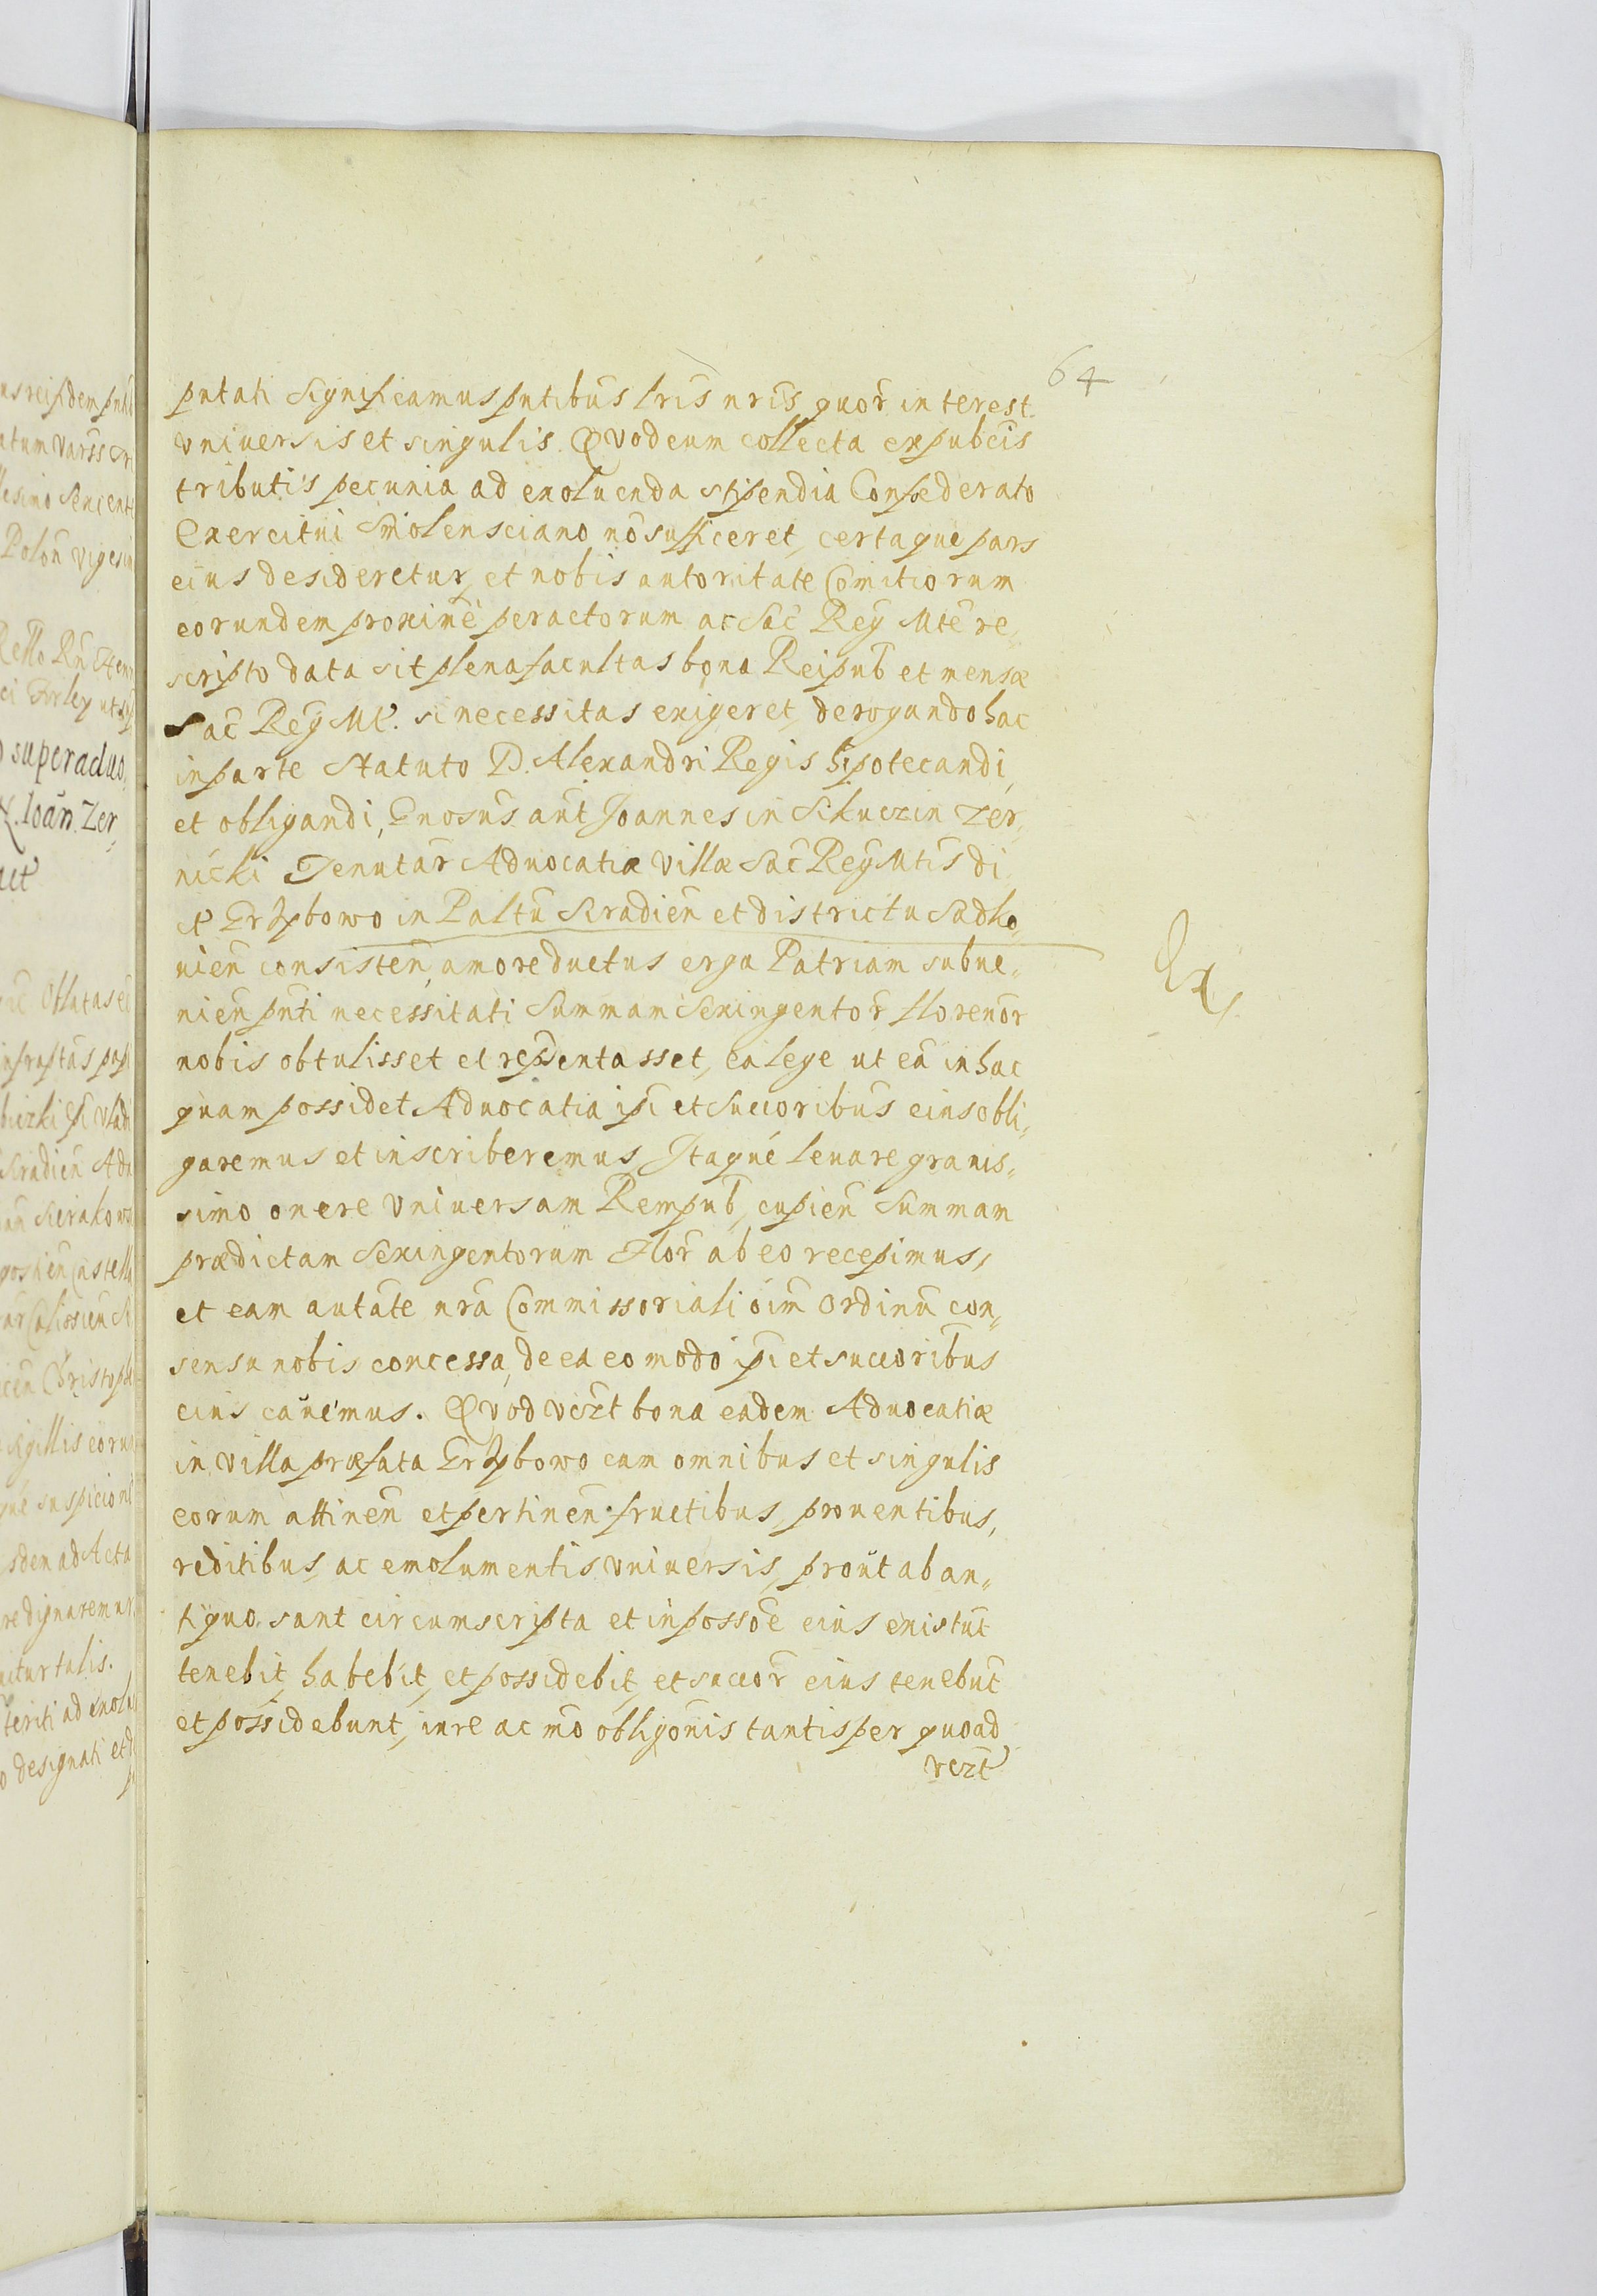 64
putati Significamus pntibus lris nris quor interest
vniuersis et singulis. Quod cum collecta ex pubcis
tributis pecunia ad exoluenda stipendia Confæderato
Exercitui Smolensciano nõ sufficeret, certaque pars
eius desideretur, et nobis autoritate Comitiorum
eorundem proximè peractorum ac Sac Reg Mte re„
scripto data sit plena facultas bona Reipub et mensæ
Sac Reg Mt. si necessitas exigeret, derogando hac
in parte Statuto D. Alexandri Regis hipotecandi,
et obligandi, Gnosus aut Joannes in Sikuczin Zer„
nicki Tenutar Aduocatiæ villæ Sac Reg Mtis di„
ct Grzybowo in Paltu Siradien et districtu Sadko„
uien consisten, amore ductus erga Patriam subue„
nien pnti necessitati Summam Sexingentor florenor
nobis obtulisset et repsentasset, ea lege ut eã in hac
quam possidet Aduocatia ipi et succoribus eius obli„
garemus et inscriberemus Itaque leuare grauis„
simo onere vniuersam Rempub, cupien Summam
prædictam Sexingentorum Flor ab eo recepimus,
et eam autate nra Commissoriali oim Ordinu con„
sensu nobis concessa, de ea eo modo ipi et succoribus
eius cauemus. Quod vczt bona eadem Aduocatiæ
in villa præfata Grzybowo cum omnibus et singulis
eorum attinen et pertinen fructibus, prouentibus,
reditibus, ac emolumentis vniuersis, prout ab an„
tiquo sunt circumscripta et in possoe eius existut
tenebit, habebit, et possidebit, et succor eius tenebut
et possidebunt, iure ac mo obligonis tantisper quoad
vczt
Ex